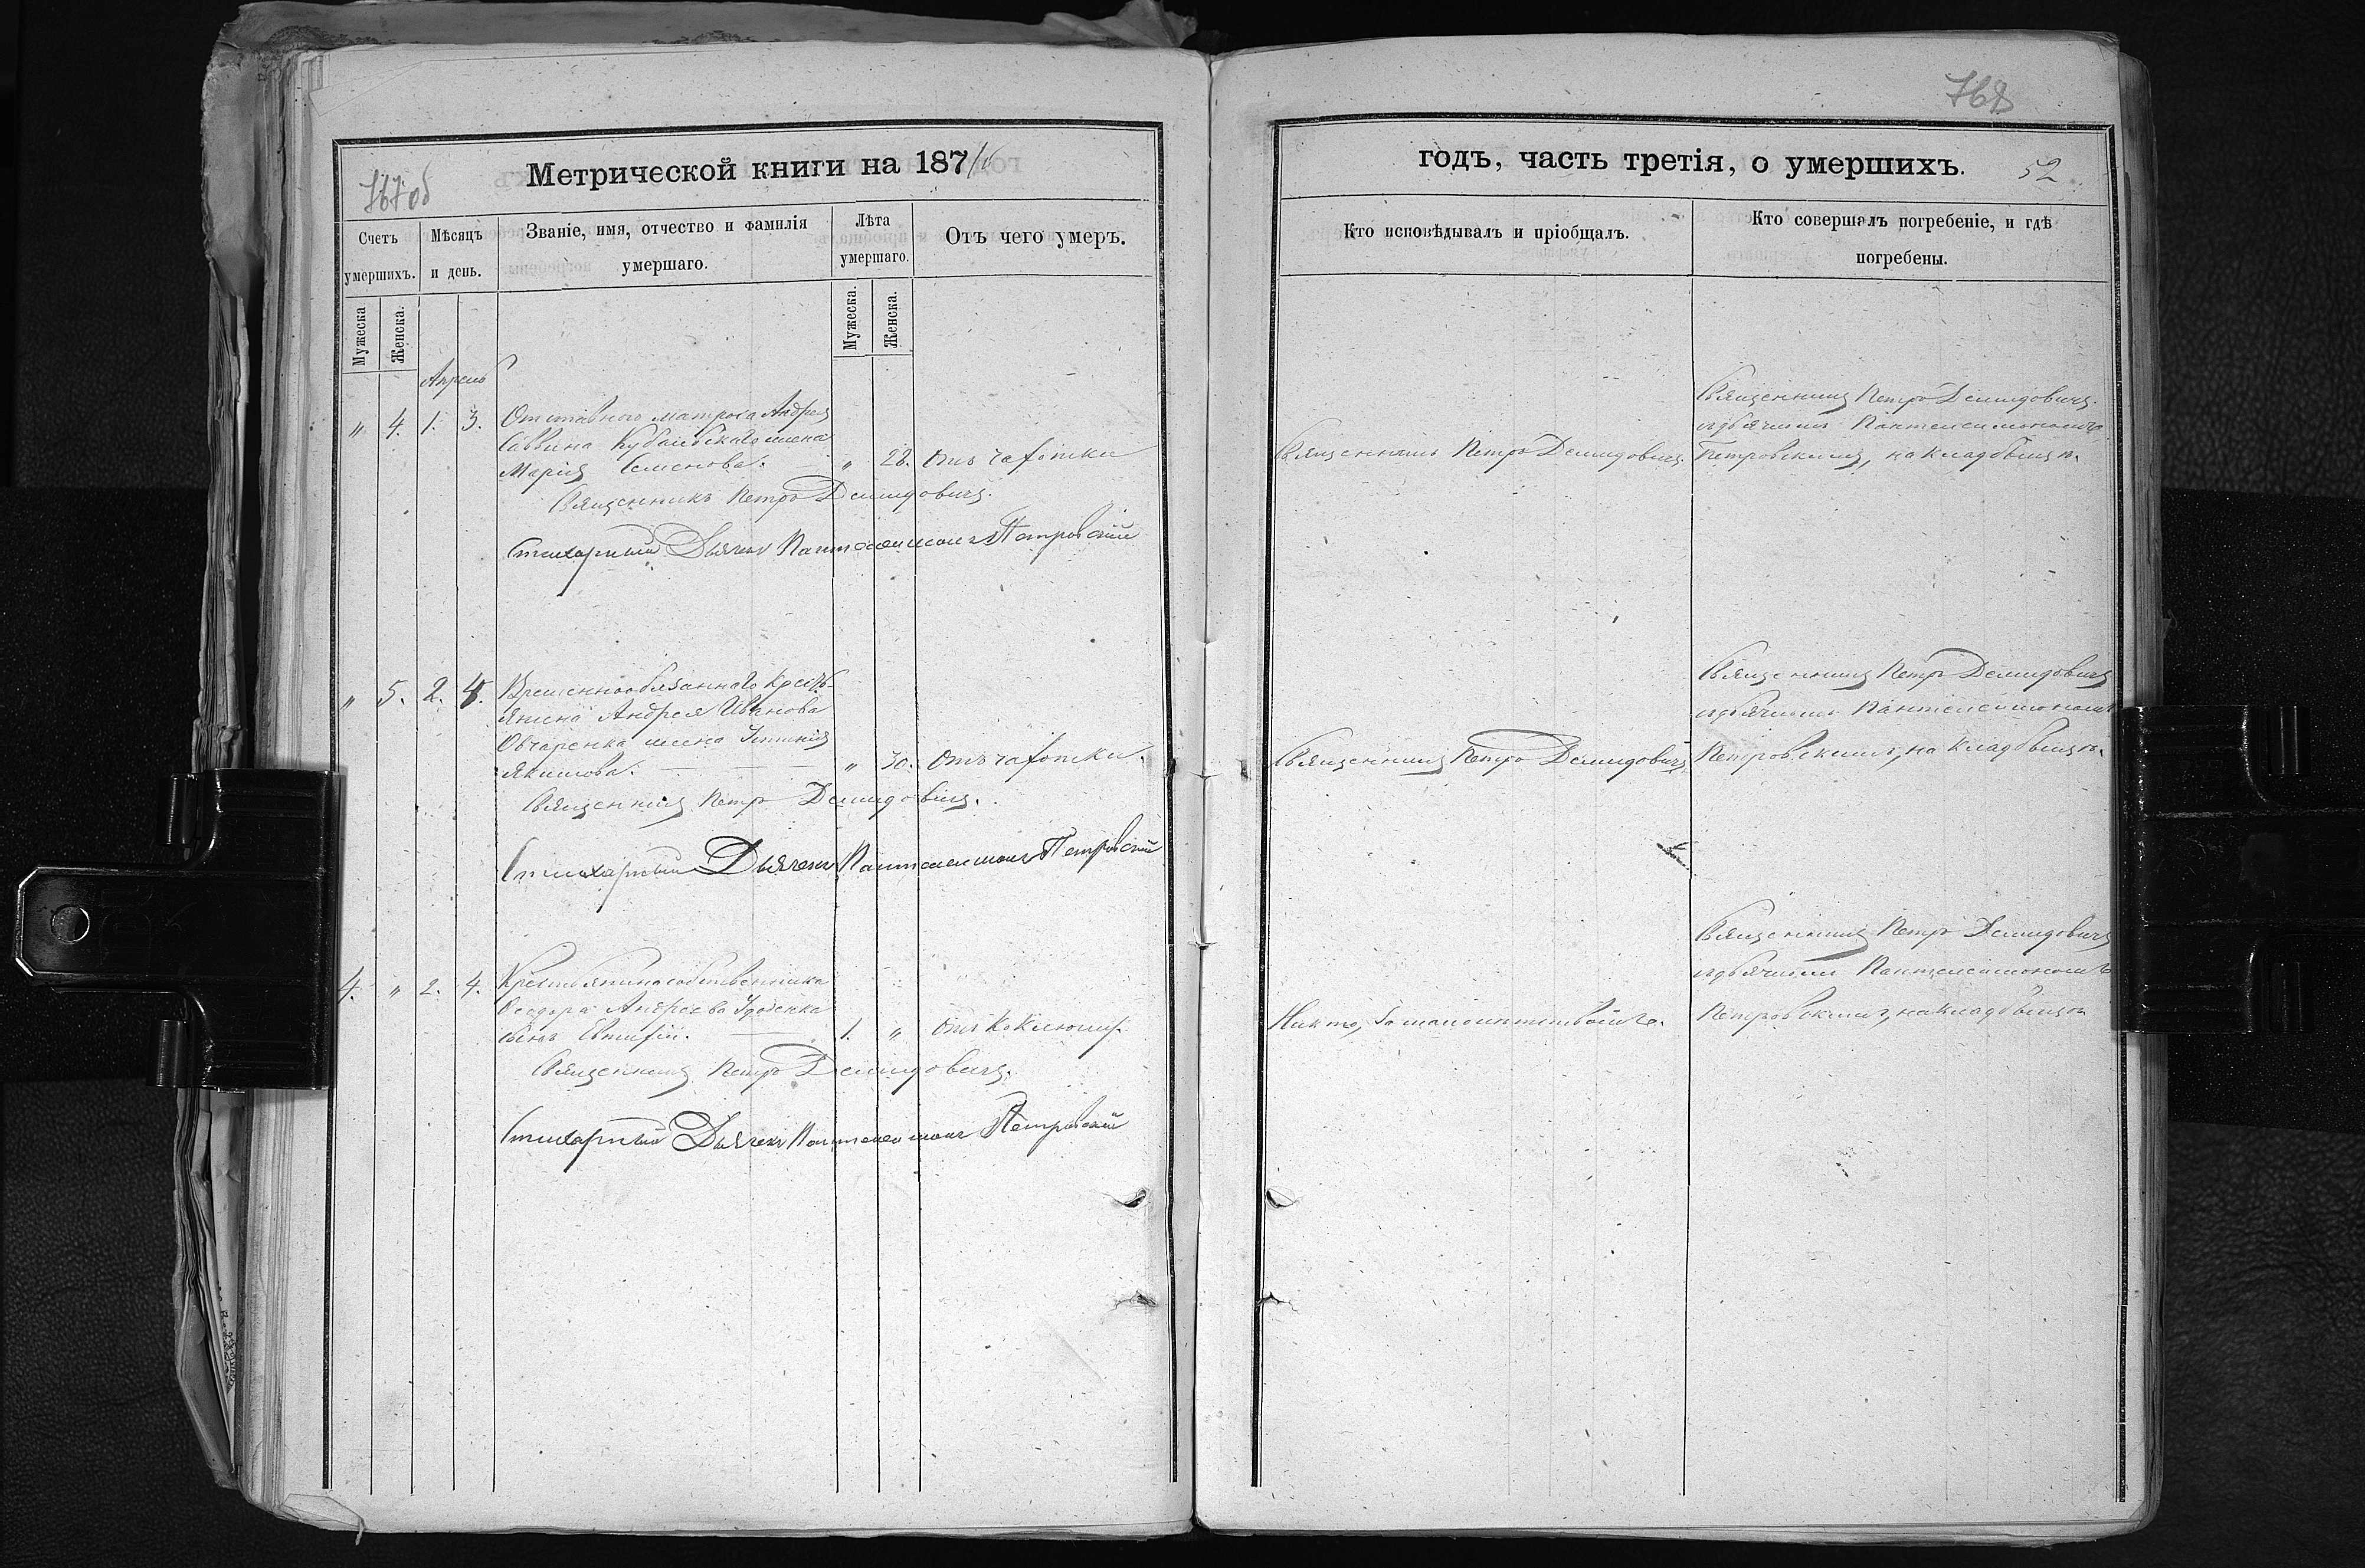 767об
Метрической книги на 187
Счетъ умершихъ.
Мѣсяцъ и день.
Званіе, имя, отчество и фамилія умершаго.
Лѣта умершаго.
Отъ чего умеръ.
Мужеска
Женска.
Мужеска.
Женска.
Апрель
" 4. 1. 3. Отставного матроса Андрея
Саввина жена
Марія Семенова. " 28. Отъ чахотки
Священникъ Петръ Демидовичъ.
Стихарный Дьячекъ Пантелеимонъ Петровскій
" 5. 2. 4. Временнообязаннаго кресть-
янина Андрея Иванова
Овчаренка жена
Якимова. " 30. Отъ чахотки.
Священникъ Петръ Демидовичъ.
Стихарный Дьячекъ Пантелеимонъ Петровскій
4. " 2. 4. Крестьянина собственника
Феодора Андреева
сынъ 1. " Отъ Коклюша
Священникъ Петръ Демидовичъ.
Стихарный Дьячекъ Пантелеимонъ Петровскій
768
годъ, часть третія, о умершихъ. 52
Кто исповѣдывалъ и пріобщалъ.
Кто совершалъ погребеніе, и гдѣ погребены.
Священникъ Петръ Демидовичъ.
Священникъ Петръ Демидовичъ.
съ дьячкомъ Пантелеимономъ
Петровскимъ, на кладбищѣ.
Священникъ Петръ Демидовичъ
Священникъ Петръ Демидовичъ
съ дьячкомъ Пантелеимономъ
Петровскимъ, на кладбищѣ.
Никто, за малолѣтствомъ его.
Священникъ Петръ Демидовичъ
съ дьячкомъ Пантелеимономъ
Петровскимъ, на кладбищѣ